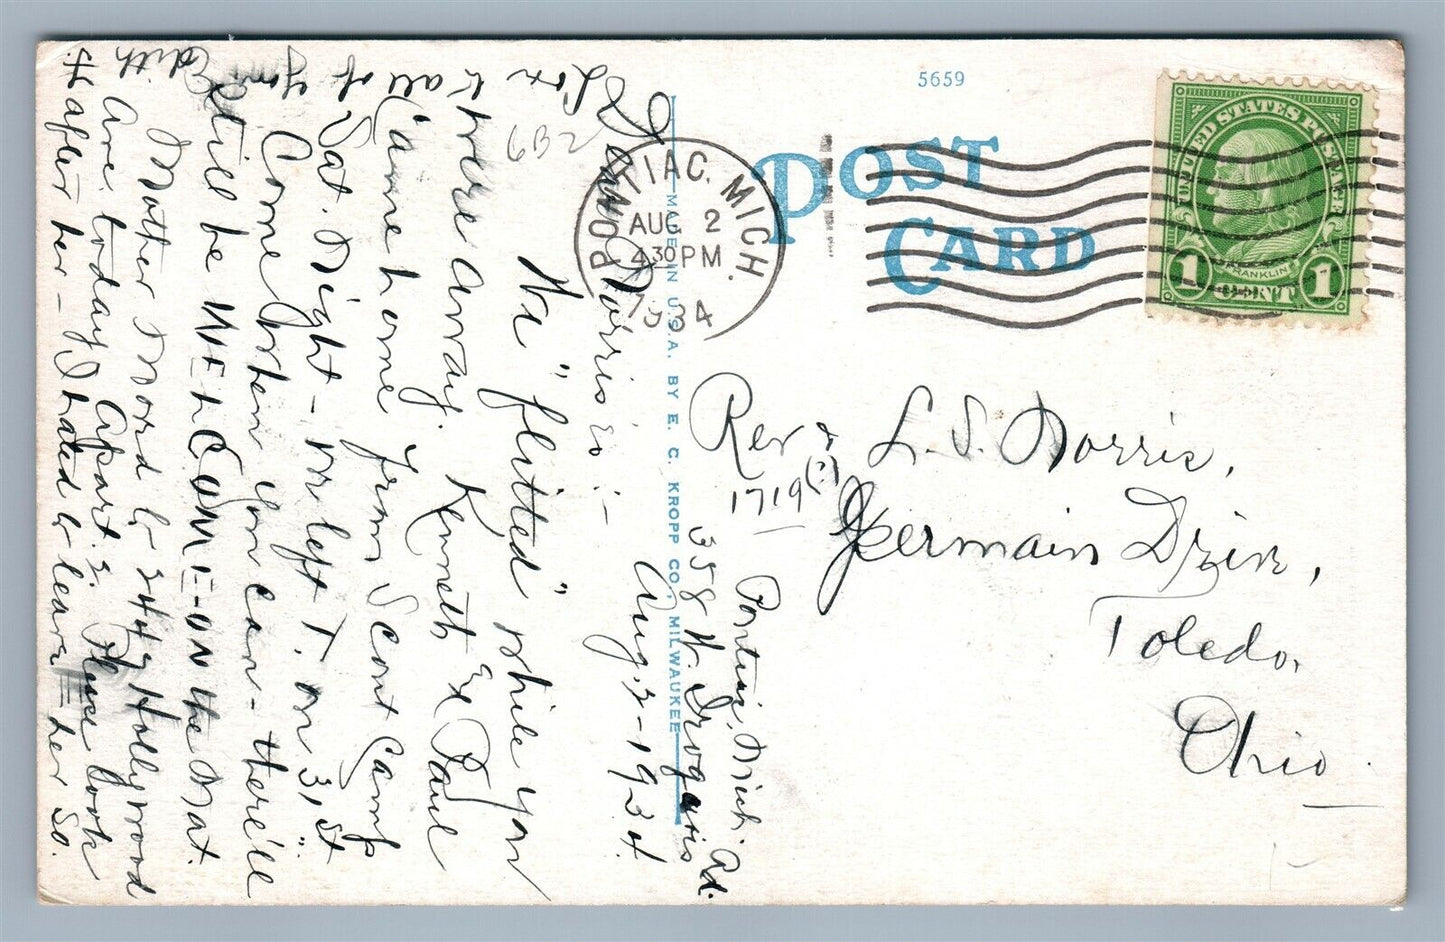 5659
POST
CARD
PONTIAC. MICH.
AUG 2
4 30 PM
1934
UNITED STATES POSTAGE
FRANKLIN
1 CENT 1
MADE IN U.S.A. BY E. C. KROPP CO., MILWAUKEE
6B2
Rev & L. S. Norris,
1719(?)
Germain Drive,
Toledo,
Ohio.
Pontiac, Mich.
358 W. Iroquois Rd.
Aug. 2-1934.
Dear Norris'es:-
We "flitted" while you
were away. Kenneth & Paul
came home from Scout Camp
Sat. Night - we left T. on 31st.
Come when you can - there'll
still be WELCOME-ON the Mat.
Mother Ward is 244 Hollywood
Ave. today Apart. 2. Please look
after her - I hated to leave her so.
Love to all of you
Edith